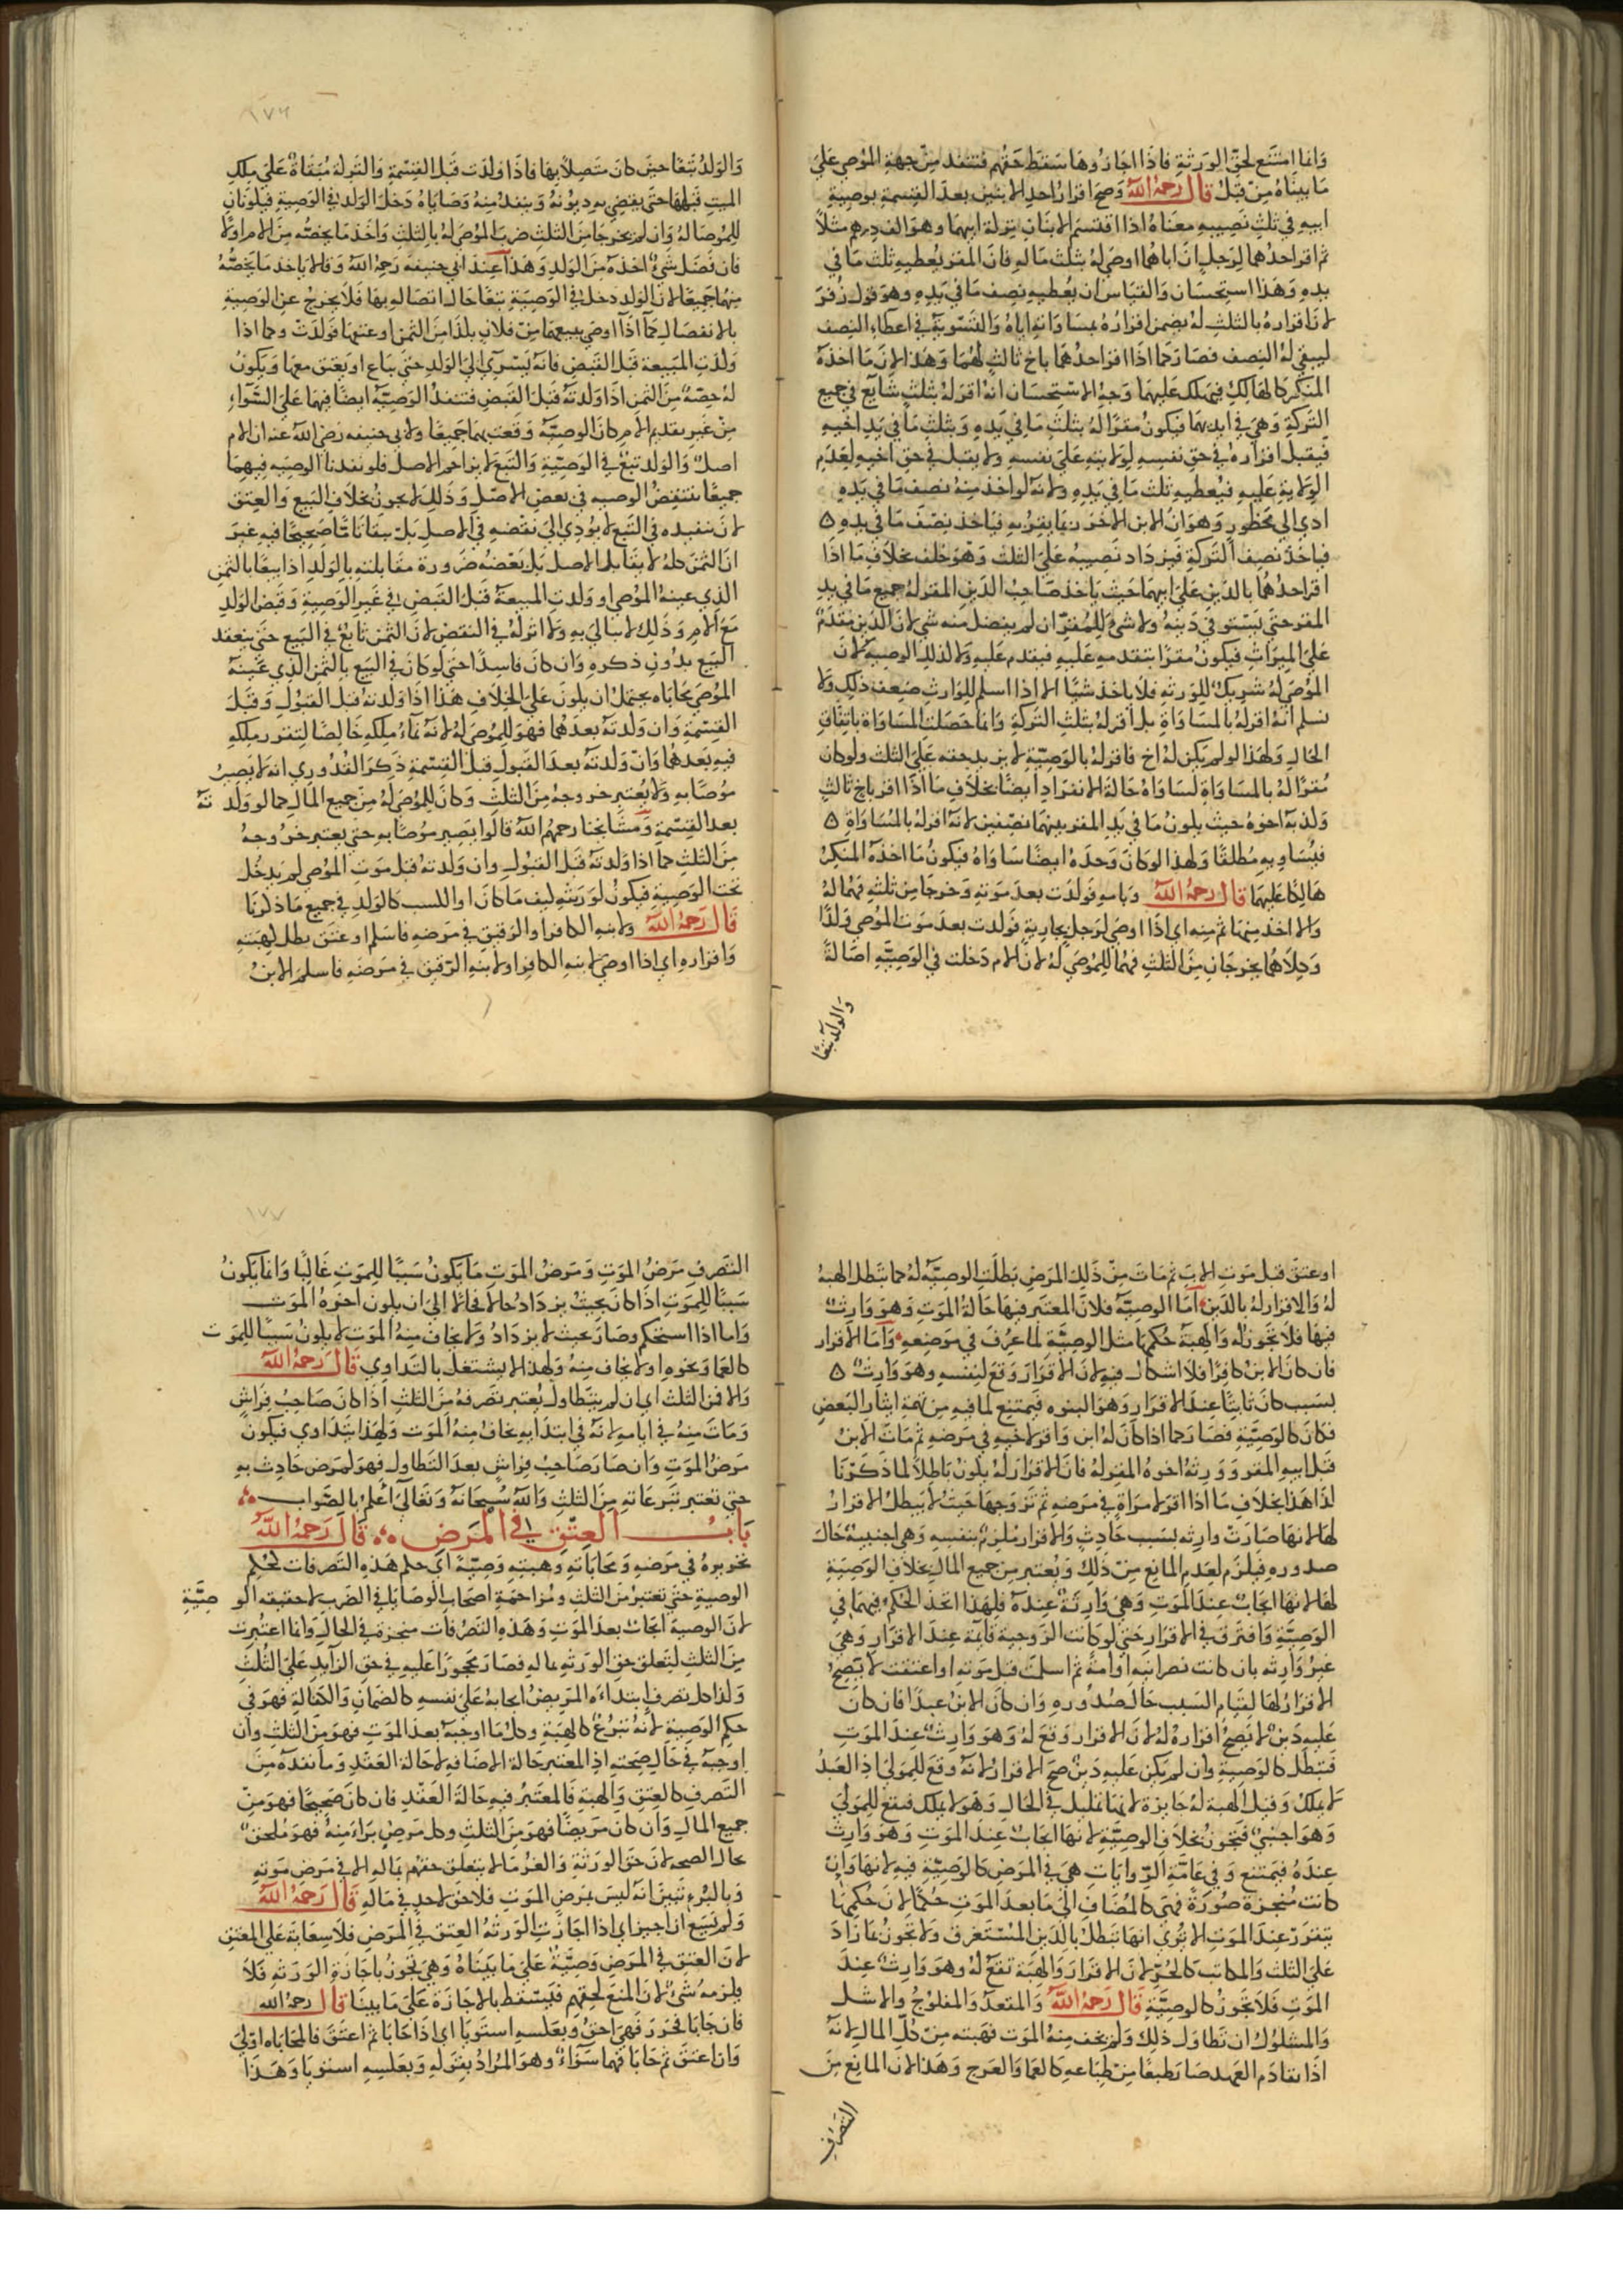 وانما امتنع لحق الورثة فاذا اجازوها سقط حقهم فتنفذ من جهة الموصي على
ما بيناه من قبل قال رحمه الله وصح اقرار احد الابنين بعد القسمة بوصية
ابيه في ثلث نصيبه معناه اذا اقتسم الابنان تركة ابيهما وهو الف درهم مثلا
ثم اقر احدهما لرجل ان اباهما اوصى له بثلث ماله فان المقر يعطيه ثلث ما في
يده وهذا استحسان والقياس ان يعطيه نصف ما في يده وهو قول زفر
لان اقراره بالثلث له يضمن اقراره بمساواته اياه والتسوية في اعطاء النصف
ليبقى له النصف فصار كما اذا اقر احدهما باخ ثالث لهما وهذا لان ما اخذه
المنكر كالهالك فيهلك عليهما وجه الاستحسان انه اقر له بثلث شايع في جميع
التركة وهي في ايديهما فيكون مقرا له بثلث ما في يده وبثلث ما في يد اخيه
فيقبل اقراره في حق نفسه لولايته على نفسه ولا يقبل في حق اخيه لعدم
الولاية عليه فيعطيه ثلث ما في يده ولانه لو اخذ منه نصف ما في يده
ادي الى محظور وهو ان الابن الاخر ربما يقر به فياخذ نصف ما في يده ه
فياخذ نصف التركة فيزداد نصيبه على الثلث وهو خلف بخلاف ما اذا
اقر احدهما بالدين على ابيهما حيث ياخذ صاحب الدين المقر له جميع ما في يد
المقر حتى يستوفي دينه ولا شئ للمقر ان لم يفضل منه شئ لان الدين مقدم
على الميراث فيكون مقرا بتقدمه عليه فيقدم عليه ولا لذلك الوصية لان
الموصى له شريك للورثة فلا ياخذ شيا الا اذا سلم للوارث ضعف ذلك ولا
نسلم انه اقر له بالمساواة بل اقر له بثلث التركة وانما حصلت المساواة باتفاق
الحال ولهذا لو لم يكن له اخ فاقر له بالوصية لا يزيد حقه على الثلث ولو كان
مقرا له بالمساواة لساواه حالة الانفراد ايضا بخلاف ما اذا اقر باخ ثالث
وكذبه اخوه حيث يكون ما في يد المقر بينهما نصفين لانه اقر له بالمساواة ه
فيساويه مطلقا ولهذا لو كان وحده ايضا ساواه فيكون ما اخذه المنكر
هالكا عليهما قال رحمه الله وبامه فولدت بعد موته وخرجا من ثلثه فهما له
والا اخذ منها ثم منه اي اذا اوصى لرجل بجارية فولدت بعد موت الموصي ولدا
وكلاهما يخرجان من الثلث فهما للموصى له لان الام دخلت في الوصية اصالة
والولد تبعا
١٧٦
والولد تبعا حين كان متصلا بها فاذا ولدت قبل القسمة والتركة مبقاة على ملك
الميت قبلها حتى يقضي به ديونه وينفذ منه وصاياه دخل الولد في الوصية فيكونان
للموصا له وان لم يخرجا من الثلث ضرب الموصى له بالثلث واخذ ما يخصه من الام اولا
فان فضل شئ اخذه من الولد وهذا عند ابي حنيفه رحمه الله وقالا ياخذ ما يخصه
منهما جميعا لان الولد دخل في الوصية تبعا حال اتصاله بها فلا يخرج عن الوصية
بالانفصال كما اذا اوصى ببيعهما من فلان بكذا من الثمن او عتقها فولدت وكما اذا
ولدت المبيعة قبل القبض فانه يسري الى الولد حتى يباع او يعتق معها ويكون
له حصة من الثمن اذا ولدته قبل القبض فتنفذ الوصية ايضا فيهما على السواء
من غير تقديم الام كان الوصية وقعت بهما جميعا ولابي حنيفه رضي الله عنه ان الام
اصل والولد تبع في الوصية والتبع لا يزاحم الاصل فلو نفدنا الوصيه فيهما
جميعا ينتقض الوصيه في بعض الاصل وذلك لا يجوز بخلاف البيع والعتق
لان تنفيذه في التبع لا يودي الى نقضه في الاصل بل يبقا تاما صحيحا فيه غير
ان الثمن كله لا يقابل الاصل بل بعضه ضرورة مقابلته بالولد اذا بيعا بالثمن
الذي عينه الموصي او ولدت المبيعة قبل القبض في غير الوصية وقبض الولد
مع الام وذلك لا يبالي به ولا اثر له في النقض لان الثمن تابع في البيع حتى ينعقد
البيع بدون ذكره وان كان فاسدا حتى لو كان في البيع بالثمن الذي عينه
الموصي محاباه يحتمل ان يكون على الخلاف هذا اذا ولدته قبل القبول وقبل
القسمة وان ولدته بعدهما فهو للموصى له لانه نماء ملكه خالصا لتقرر ملكه
فيه بعدهما وان ولدته بعد القبول قبل القسمة ذكر القدوري انه لا يصير
موصا به ولا يعتبر خروجه من الثلث وكان للموصى له من جميع المال كما لو ولدته
بعد القسمة ومشايخنا رحمهم الله قالوا يصير موصا به حتى يعتبر خروجه
من الثلث كما اذا ولدته قبل القبول وان ولدته قبل موت الموصي لم يدخل
تحت الوصية فيكون لورثته كيف ما كان او الكسب كالولد في جميع ما ذكرنا
قال رحمه الله ولابنه الكافر او الرقيق في مرضه فاسلم او عتق بطل كهبته
واقراره اي اذا اوصى لابنه الكافر او لابنه الرقيق في مرضه فاسلم الابن
او عتق قبل موت الاب ثم مات من ذلك المرض بطلت الوصية له كما تبطل الهبة
له والاقرار له بالدين اما الوصية فلان المعتبر فيها حالة الموت وهو وارث
فيها فلا تجوز له والهبة حكمها مثل الوصية لما عرف في موضعه واما الاقرار
فان كان الابن كافرا فلا اشكال فيه لان الاقرار وقع لنفسه وهو وارث ه
بسبب كان ثابتا عند الاقرار وهو البنوه فيمتنع لما فيه من تهمة ايثار البعض
فكان كالوصية فصار كما اذا كان له ابن واقر لاخيه في مرضه ثم مات الابن
قبل ابيه المقر وورثه اخوه المقر له فان الاقرار له يكون باطلا لما ذكرنا
كذا هذا بخلاف ما اذا اقر لامراة في مرضه ثم تزوجها حيث لا يبطل الاقرار
لها لانها صارت وارثه بسبب حادث والاقرار ملزم بنفسه وهي اجنبية حال
صدوره فيلزم لعدم المانع من ذلك ويعتبر من جميع المال بخلاف الوصية
لها لانها ايجاب عند الموت وهي وارثة عنده فلهذا اتحد الحكم فيهما في
الوصية وافترق في الاقرار حتى لو كانت الزوجية قايمة عند الاقرار وهي
غير وارثه بان كانت نصرانيه او امة ثم اسلمت قبل موته او اعتقت لا يصح
الاقرار لها لقيام السبب حال صدوره وان كان الابن عبدا فان كان
عليه دين لا يصح اقراره له لان الاقرار وقع له وهو وارث عند الموت
فتبطل كالوصية وان لم يكن عليه دين صح الاقرار لانه وقع للمولى اذ العبد
لا يملك وقيل الهبة له جايزة لانها تمليك في الحال وهو لا يملك فيقع للمولى
وهو اجنبي فتجوز بخلاف الوصية لانها ايجاب عند الموت وهو وارث
عنده فيمتنع وفي عامة الروايات هي في المرض كالوصية فيه لانها وان
كانت منجزة صورة فهي كالمضاف الى ما بعد الموت حكما لان حكمها
يتقرر عند الموت الا ترى انها تبطل بالدين المستغرق ولا تجوز بما زاد
على الثلث والمكاتب كالحر لان الاقرار والهبة تقع له وهو وارث عند
الموت فلا تجوز كالوصية قال رحمه الله والمقعد والمفلوج والاشل
والمسلول ان تطاول ذلك ولم يخف منه الموت فهبته من كل المال لانه
اذا تقادم العهد صار طبعا من طباعه كالعما والعرج وهذا لان المانع من
التصرف
١٧٧
التصرف مرض الموت ومرض الموت ما يكون سببا للموت غالبا وانما يكون
سببا للموت اذا كان بحيث يزداد حالا فحالا الى ان يكون اخره الموت
واما اذا استحكم وصار بحيث لا يزداد ولا يخاف منه الموت لا يكون سببا للموت
كالعما ونحوه اولا يخاف منه ولهذا لا يشتغل بالتداوي قال رحمه الله
والا فمن الثلث اي ان لم يتطاول يعتبر تصرفه من الثلث اذا كان صاحب فراش
ومات منه في ايامه لانه في ابتدايه يخاف منه الموت ولهذا يتداوي فيكون
مرض الموت وان صار صاحب فراش بعد التطاول فهو كمرض حادث به
حتى تعتبر تبرعاته من الثلث والله سبحانه وتعالى اعلم بالصواب
باب العتق في المرض قال رحمه الله
تحريره في مرضه ومحاباته وهبته وصية اي حكم هذه التصرفات كحكم
الوصية حتى تعتبر من الثلث ومزاحمة اصحاب الوصايا في الضرب لا حقيقه الوصية
لان الوصية ايجاب بعد الموت وهذه التصرفات منجزة في الحال وانما اعتبرت
من الثلث لتعلق حق الورثه بماله فصار محجورا عليه في حق الزايد على الثلث
وكذا كل تصرف ابتداءه المريض ايجابه على نفسه كالضمان والكفالة فهو في
حكم الوصية لانه تبرع كالهبة وكل ما اوجبه بعد الموت فهو من الثلث وان
اوجبه في حال صحته اذ المعتبر حالة الاضافه لا حالة العقد وما نفذه من
التصرف كالعتق والهبة فالمعتبر فيه حالة العقد فان كان صحيحا فهو من
جميع المال وان كان مريضا فهو من الثلث وكل مرض براء منه فهو ملحق
بحال الصحه لان حق الورثة والغرما لا يتعلق حقهم بماله الا في مرض موته
وبالبرء تبين انه ليس بمرض الموت فلا حق لاحد في ماله قال رحمه الله
ولم يسع ان اجيز اي اذا اجازت الورثه العتق في المرض فلا سعاية على المعتق
لان العتق في المرض وصية على ما بيناه وهي تجوز باجازة الورثه فلا
يلزمه شئ لان المنع لحقهم فيسقط بالاجازة على ما بينا قال رحمه الله
فان حابا فحرر فهي احق وبعكسه استويا اي اذا حابا ثم اعتق فالمحاباه اولى
وان اعتق ثم حابا فهما سواء وهو المراد بقوله وبعكسه استويا وهذا